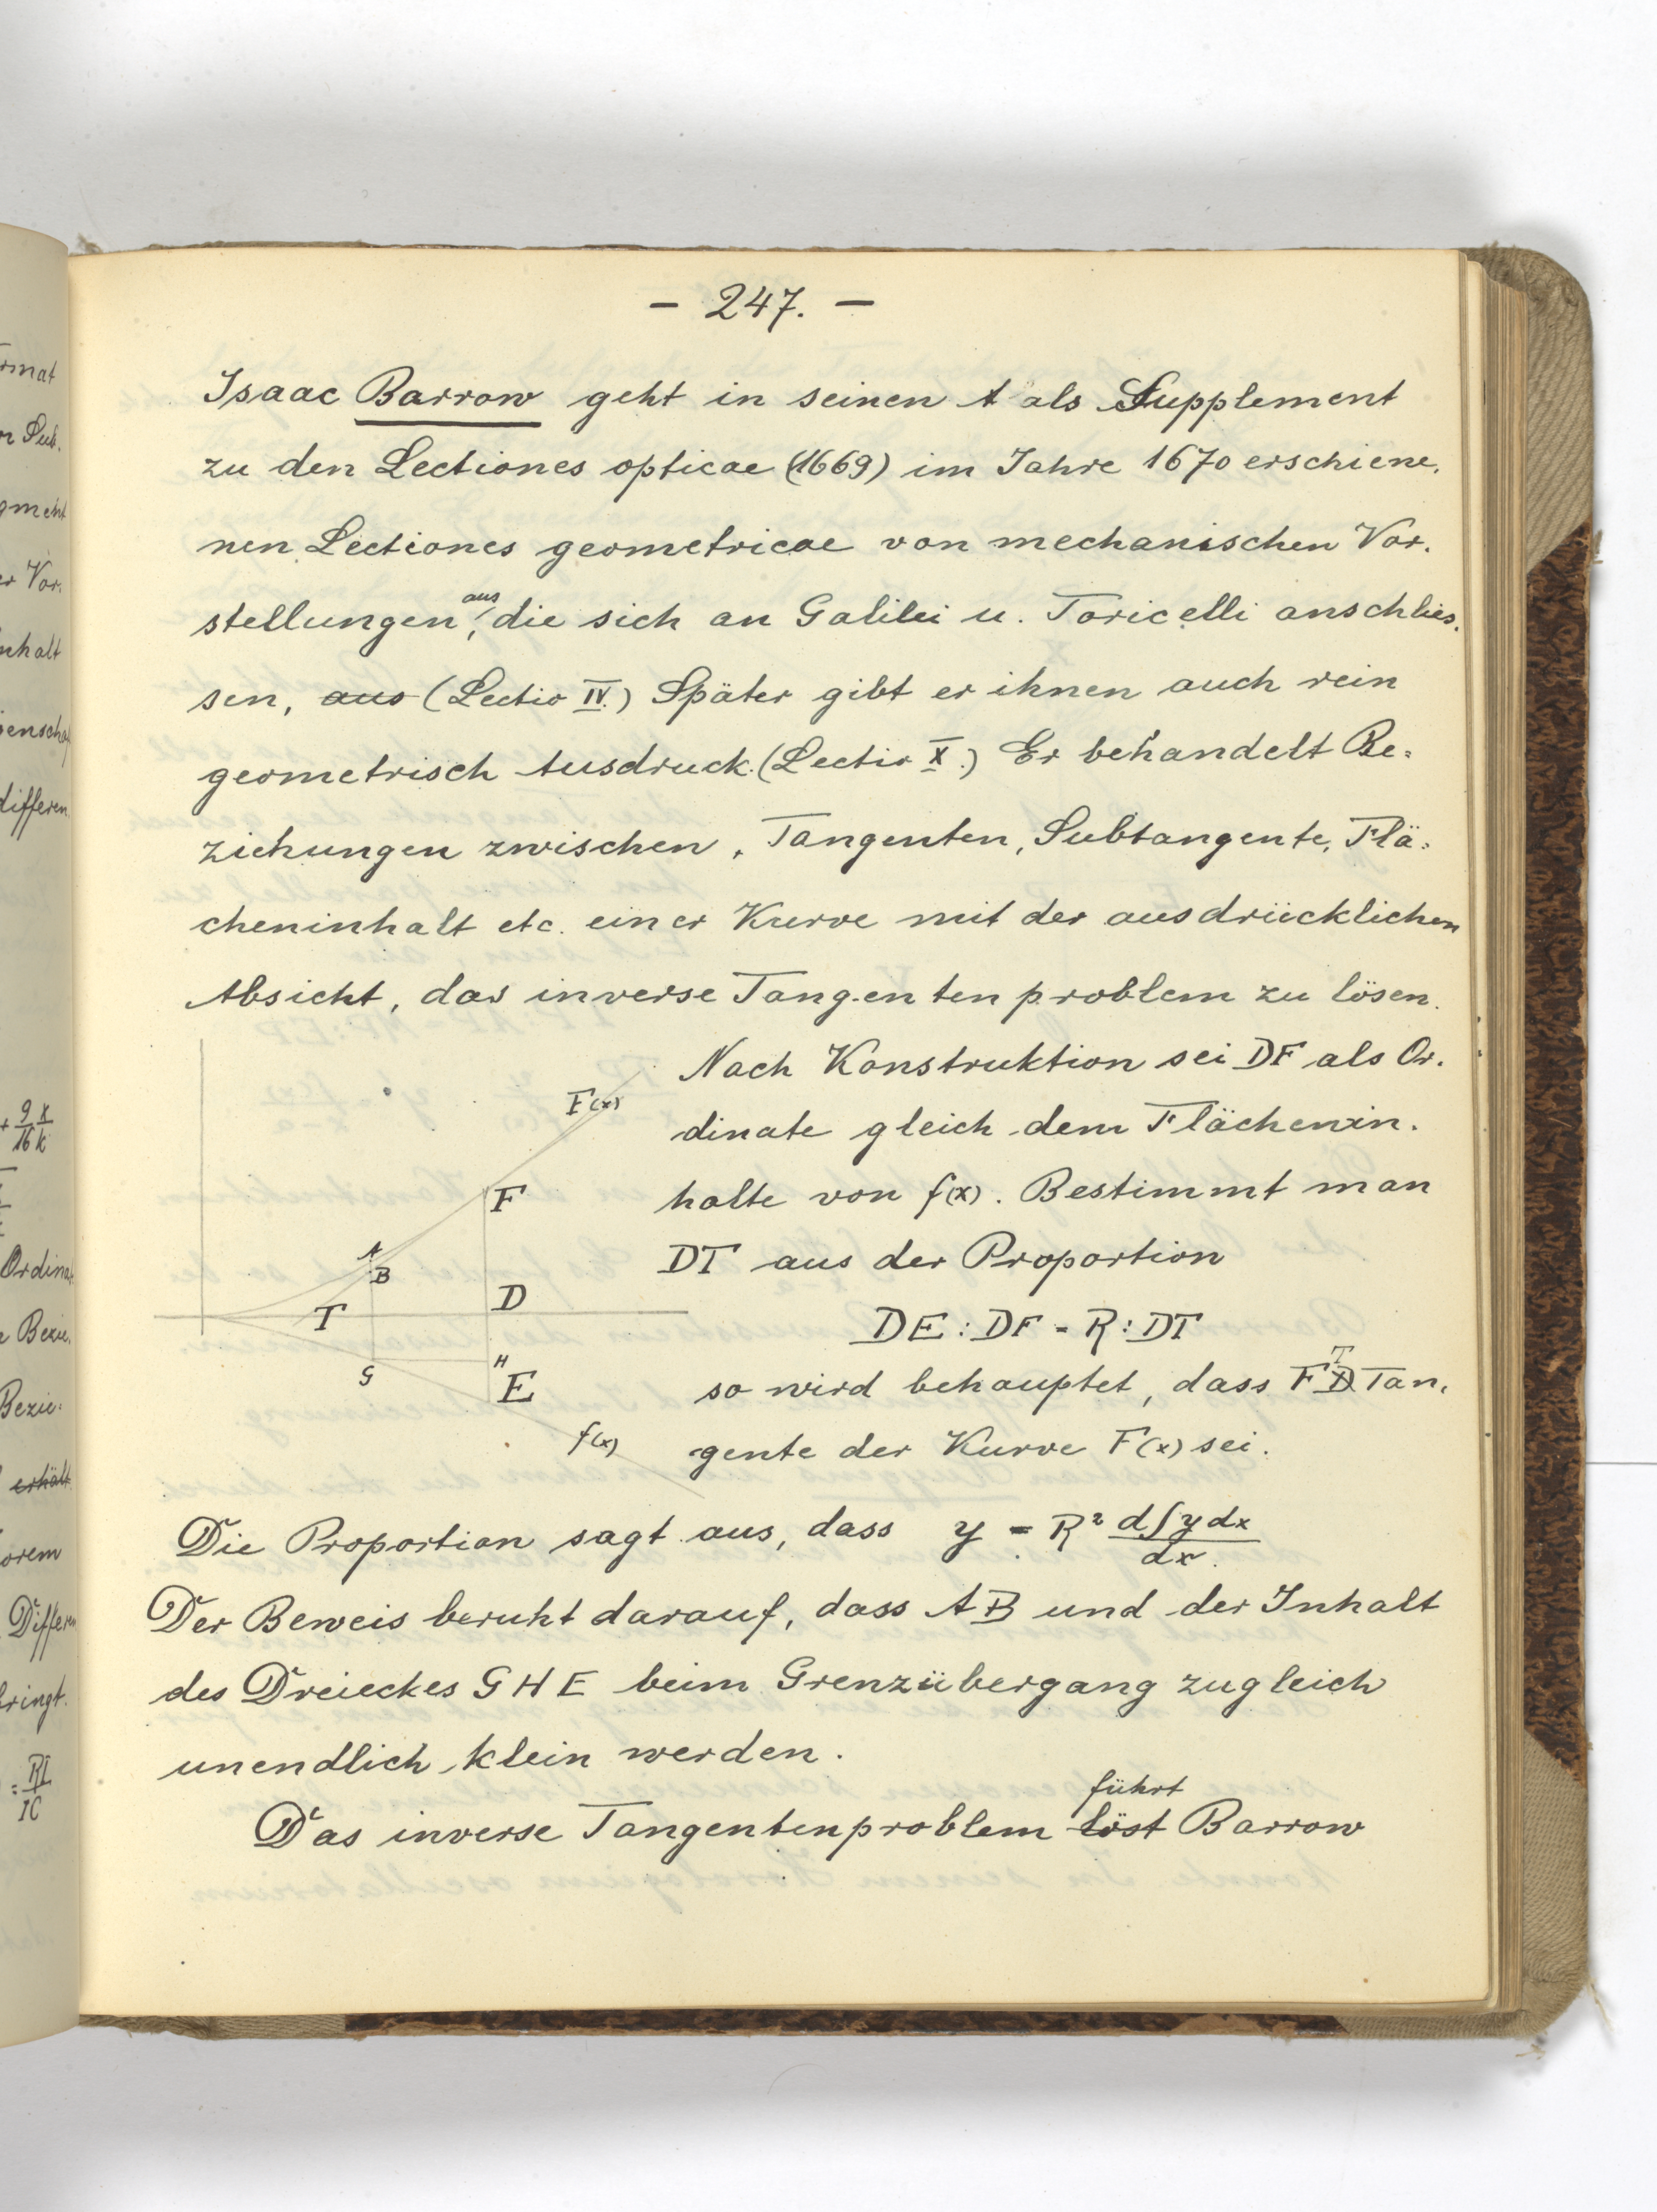 - 247. -
Isaac Barrow geht in seinen A als Supplement
zu den Lectiones opticae (1669) im Jahre 1670 erschiene.
nen Lectiones geometricae von mechanischen Vor.
stellungen aus, die sich an Galilei u. Toricelli anschlies.
sen, aus (Lectio IV.) Später gibt er ihnen auch rein
geometrisch Ausdruck. (Lectio X.) Er behandelt Be=
ziehungen zwischen, Tangenten, Subtangente, Flä=
cheninhalt etc. einer Kurve mit der ausdrücklichen
Absicht, das inverse Tangentenproblem zu lösen.
Nach Konstruktion sei DF als Or.
dinate gleich dem Flächenin.
halte von f(x). Bestimmt man
DT aus der Proportion
DE : DF = R : DT
so wird behauptet, dass FT Tan.
gente der Kurve F(x) sei.
F(x)
F
A
B
T
D
G
H
E
f(x)
Die Proportion sagt aus, dass y = R² d∫y dx / dx.
Der Beweis beruht darauf, dass AB und der Inhalt
des Dreieckes GHE beim Grenzübergang zugleich
unendlich klein werden.
Das inverse Tangentenproblem löst führt Barrow
rmat
r Sub.
gment
er Vor.
nhalt
enscha
differen.
+ 9/16 x/k
Ordina
e Bezie.
Bezie=
erhält
orem
Differen
bringt.
= RI/IC